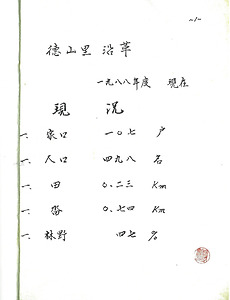 -1-
德山里 沿革
一九八八年度 現在
現 況
一. 家口 一〇七 户
一. 人口 四九八 名
一. 田 0.二三 Km
一. 畓 0.七四 Km
一. 林野 四七 %